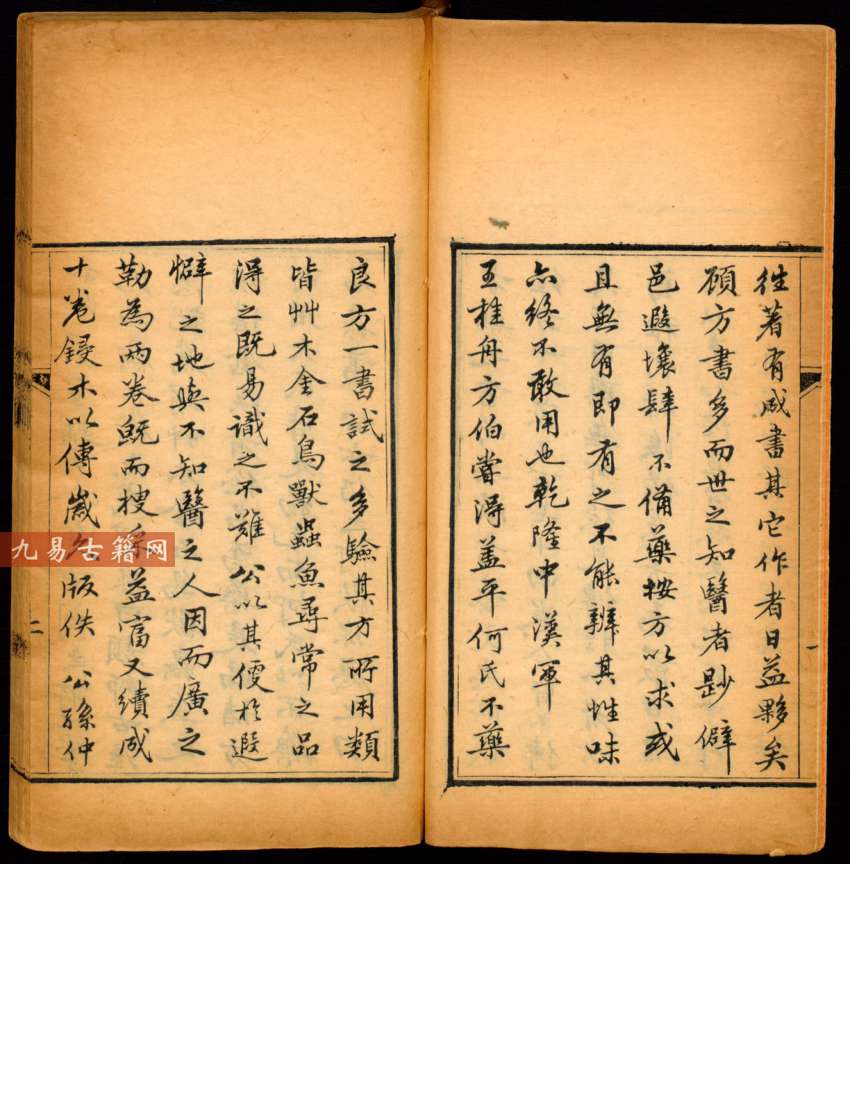 往著有成書其它作者日益夥矣
顧方書多而世之知醫者尟僻
邑遐壤肆不備藥按方以求或
且無有即有之不能辨其性味
亦終不敢用也乾隆中漢軍
王桂舟方伯嘗得蓋平何氏不藥
一
良方一書試之多驗其方所用類
皆艸木金石鳥獸蟲魚尋常之品
得之既易識之不難公以其便於遐
僻之地與不知醫之人因而廣之
勒為兩卷既而搜采益富又續成
十卷鋟木以傳歲久版佚公孫仲
二
九易古籍网